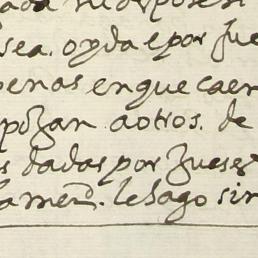 sea. oyda e por Jue
penas en que caer
pozan a otros. de
s dadas por Juezes
amerd. le hago sin